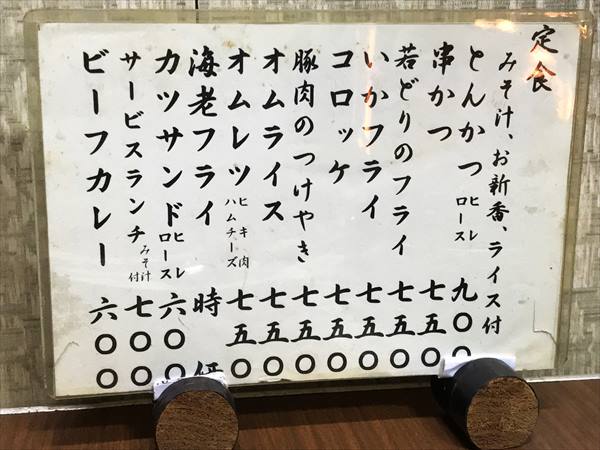 定食
みそ汁、お新香、ライス付
とんかつ ヒレ ロース 九〇〇
串かつ 七五〇
若どりのフライ 七五〇
いかフライ 七五〇
コロッケ 七五〇
豚肉のつけやき 七五〇
オムライス 七五〇
オムレツ ヒキ肉 ハムチーズ 七五〇
海老フライ 時価
カツサンド ヒレ ロース 六〇〇
サービスランチ みそ汁付 七〇〇
ビーフカレー 六〇〇